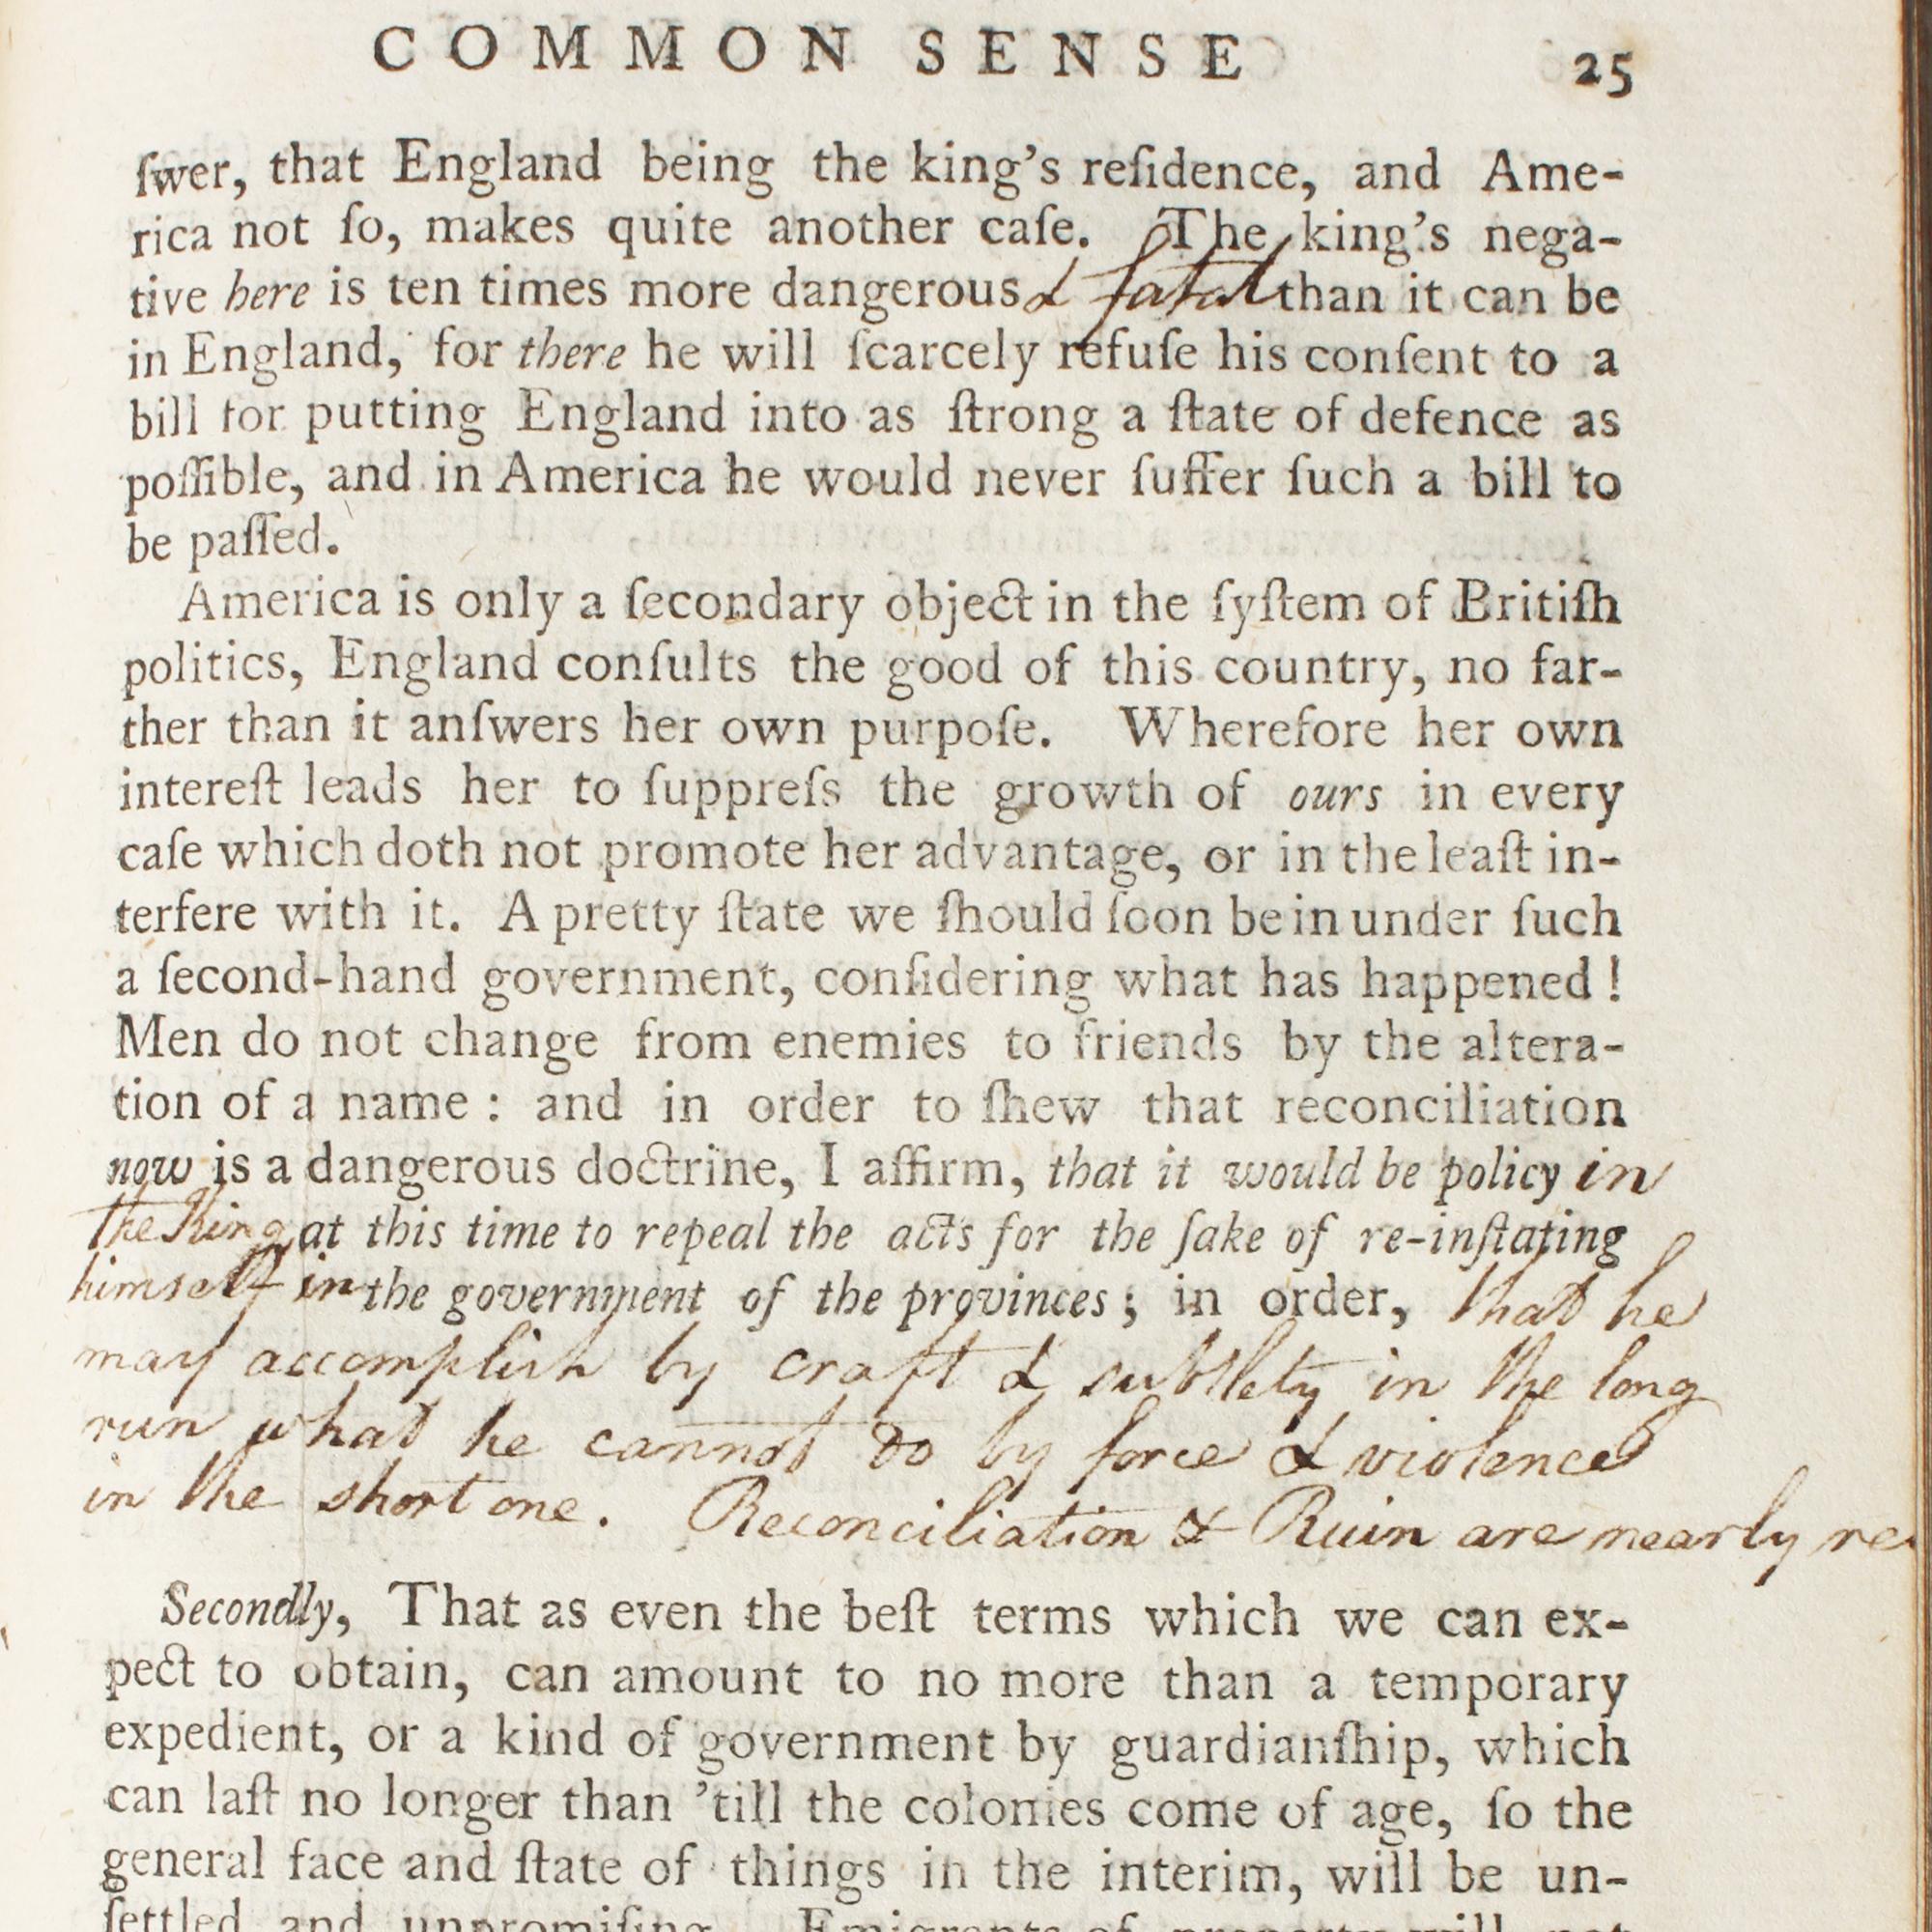 COMMON SENSE 25
ſwer, that England being the king's reſidence, and Ame-
rica not ſo, makes quite another caſe. The king's nega-
tive here is ten times more dangerous & fatal than it can be
in England, for there he will ſcarcely refuſe his conſent to a
bill for putting England into as ſtrong a ſtate of defence as
poſſible, and in America he would never ſuffer ſuch a bill to
be paſſed.
America is only a ſecondary object in the ſyſtem of Britiſh
politics, England conſults the good of this country, no far-
ther than it anſwers her own purpoſe. Wherefore her own
intereſt leads her to ſuppreſs the growth of ours in every
caſe which doth not promote her advantage, or in the leaſt in-
terfere with it. A pretty ſtate we ſhould ſoon be in under ſuch
a ſecond-hand government, conſidering what has happened!
Men do not change from enemies to friends by the altera-
tion of a name: and in order to ſhew that reconciliation
now is a dangerous doctrine, I affirm, that it would be policy in
the King at this time to repeal the acts for the ſake of re-inſtating
himself in the government of the provinces; in order, that he
may accomplish by craft & subtlety in the long
run what he cannot do by force & violence
in the short one. Reconciliation & Ruin are nearly re
Secondly, That as even the beſt terms which we can ex-
pect to obtain, can amount to no more than a temporary
expedient, or a kind of government by guardianſhip, which
can laſt no longer than 'till the colonies come of age, ſo the
general face and ſtate of things in the interim, will be un-
ſettled and unpromiſing. Emigrants of property will not